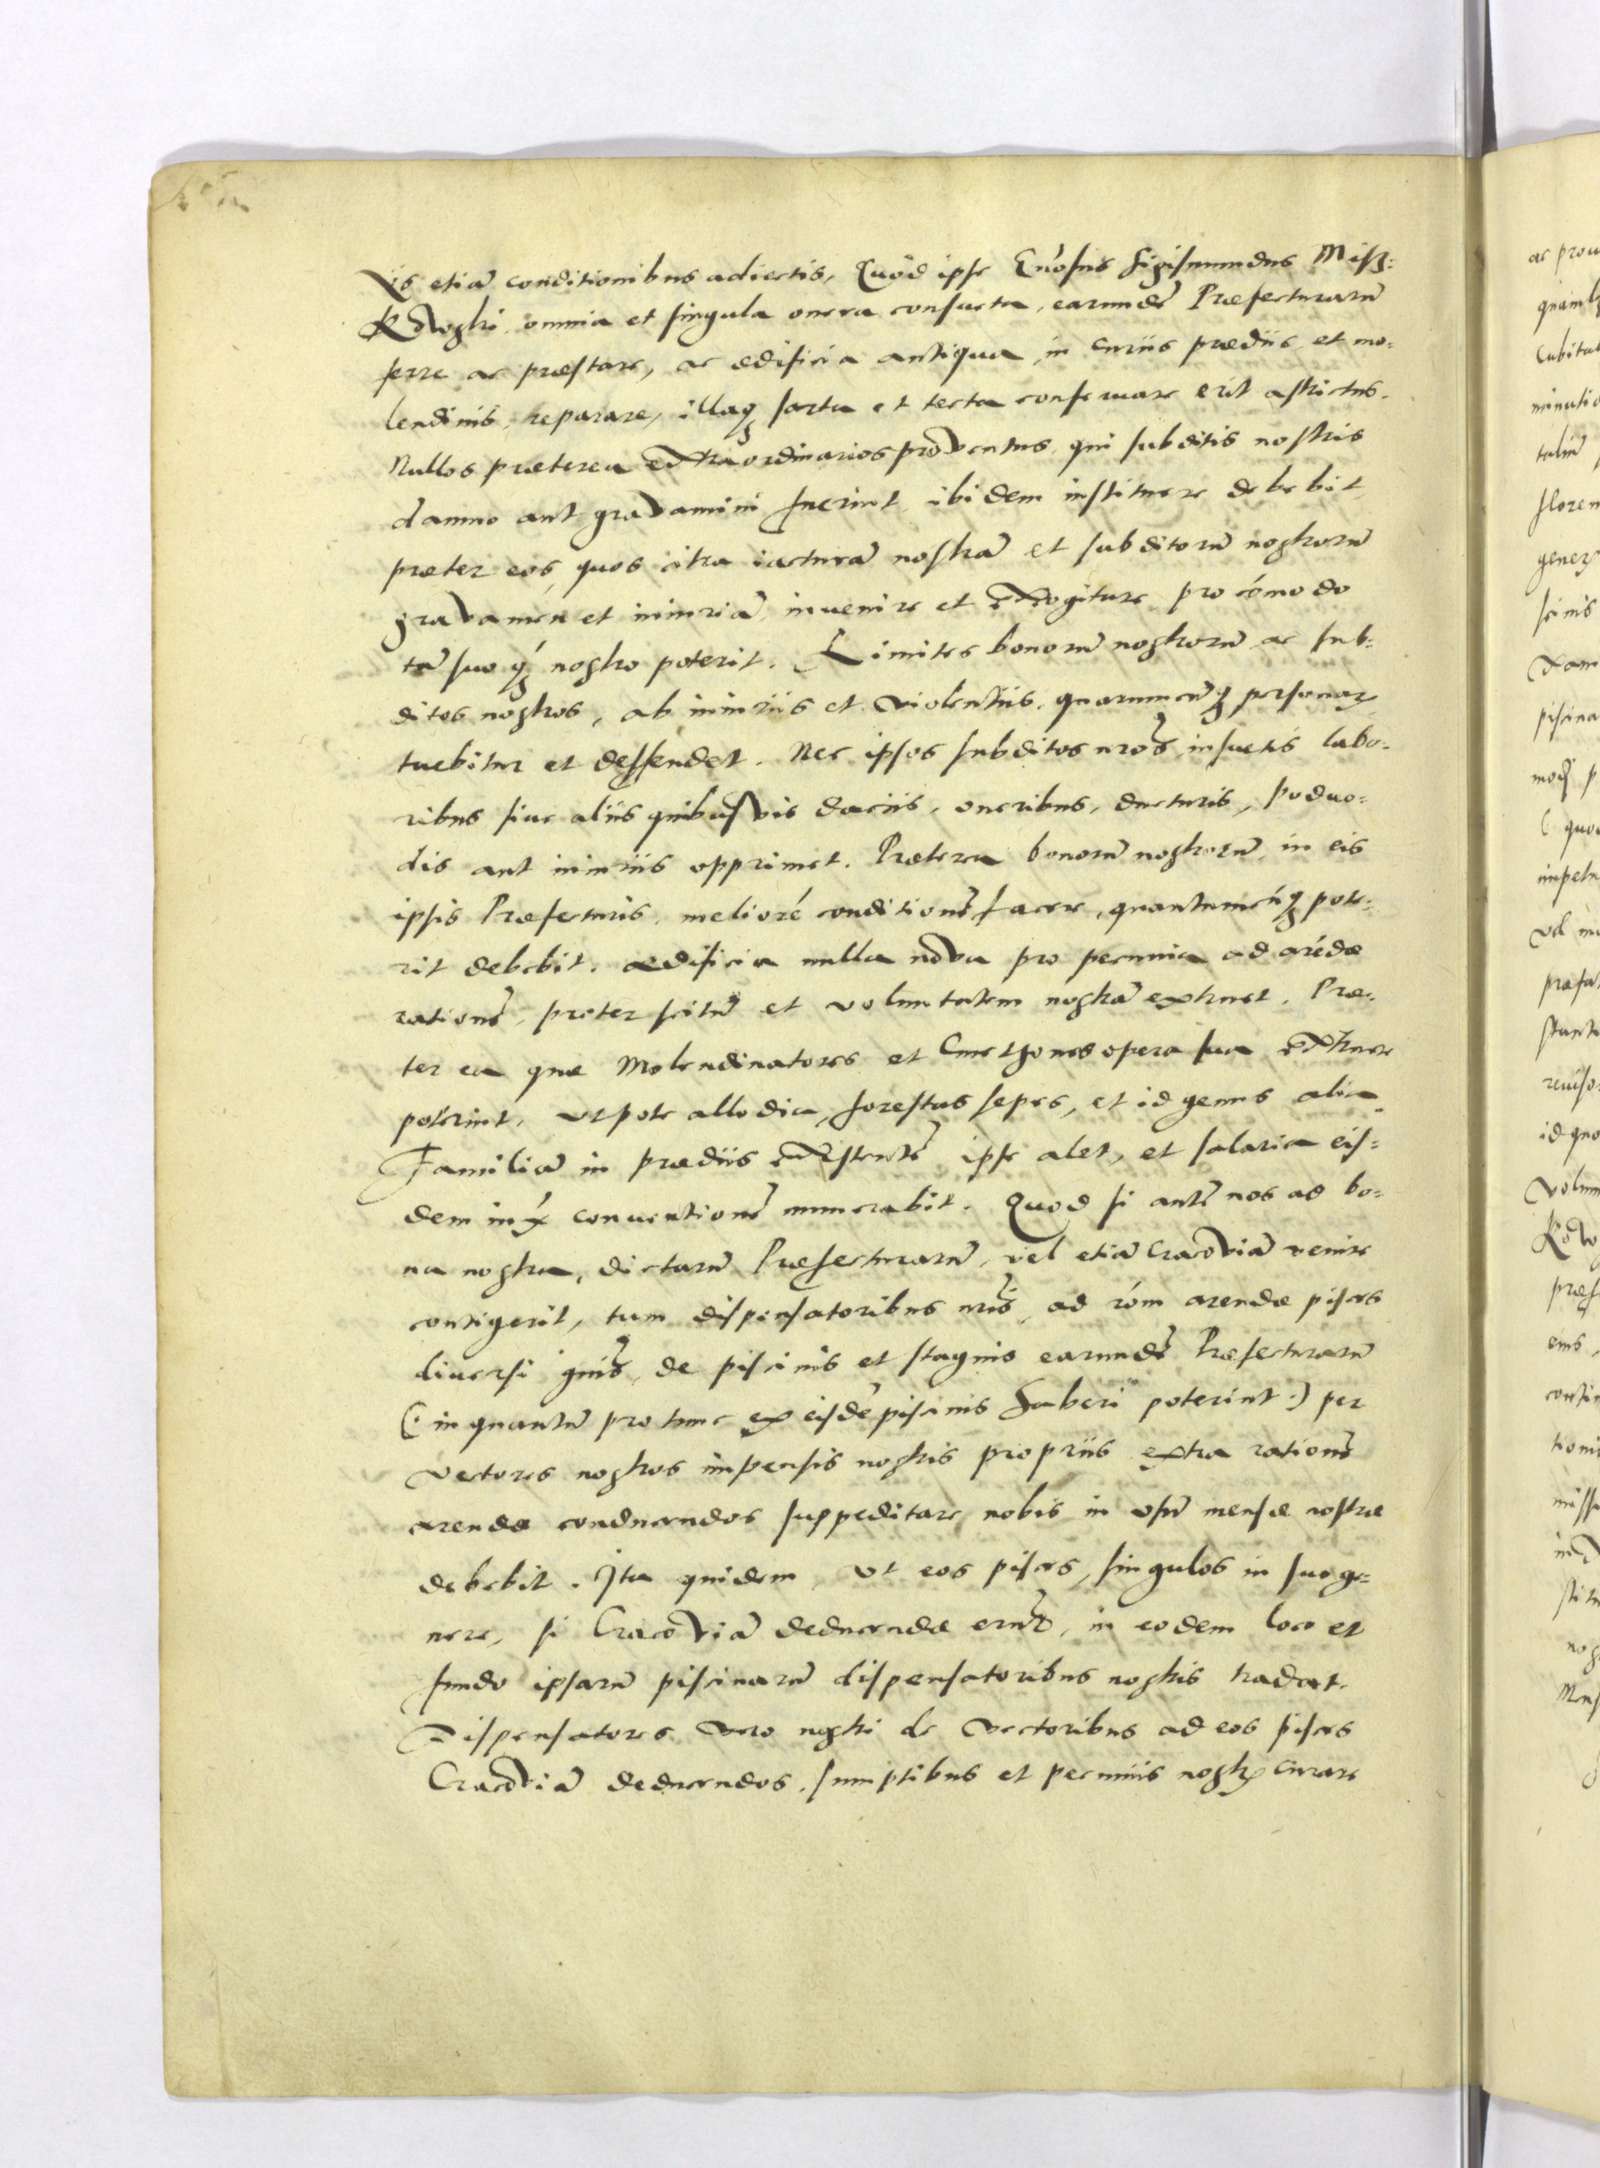 Iis etiã conditionibus adiectis, Quòd ipse Gñosus Sigismundus Misz=
Kowski, omnia et singula onera consueta, earundẽ Præfecturarũ
ferre ac præstare, ac ædificia antiqua in curiis prædiis et mo=
lendinis, reparare, illaq; sarta et tecta conseruare erit astrictus.
Nullos præterea extraordinarios proventus, qui subditis nostris
damno aut gravamini fuerint, ibidem instituere debebit
præter eos, quos citra iacturã nostrã et subditorũ nostrorũ
gravamen et iniuriã, invenire et excogitare pro cómodo
tã suo q; nostro poterit. Limites bonorũ nostrorũ ac sub=
ditos nostros, ab iniuriis et violentiis, quarumcũq; personarꝝ
tuebitur et deffendet. Nec ipsos subditos nros̃ insuetis labo=
ribus siue aliis quibusvis daciis, oneribus, ducturis, poduo=
dis aut iniuriis opprimet. Præterea bonorũ nostrorũ, in eis
ipsis Præfecturis, melioré conditionẽ facere, quantumcũq; pote=
rit debebit. ædificia nulla nova pro pecunia ad arẽdæ
rationẽ, præter scitũ et voluntatem nostrã extruet. Præ=
ter ea quæ Molendinatores et Cmethones opera sua extruere
poterint, utpote allodia, forestas sepes, et id genus alia
Familiã in prædiis existentẽ ipse alet, et salaria eis=
dem conventionẽ numerabit. Quod si autẽ nos ad bo=
na nostra, dictarũ Præfecturarũ, vel etiã Cracoviã venire
contigerit, tum dispensatoribus nris̃, ad róm arendæ pisces
diversi gnis̃, de piscinis et stagnis earundẽ Præfecturarũ
(: in quantũ pro tunc ex eisdẽ piscinis haberi poterint :) per
vectores nostros impensis nostris propriis extra rationẽ
arendæ conducendos suppeditare nobis in usũ mensæ nostræ
debebit. Ita quidem, ut eos pisces, singulos in suo ge=
nere, si Cracoviã deducendæ erũt, in eodem loco et
fundo ipsarũ piscinarũ dispensatoribus nostris tradat.
Dispensatores vero nostri de vectoribus ad eos pisces
Cracoviã deducendos, sumptibus et pecuniis nostrꝭ curare